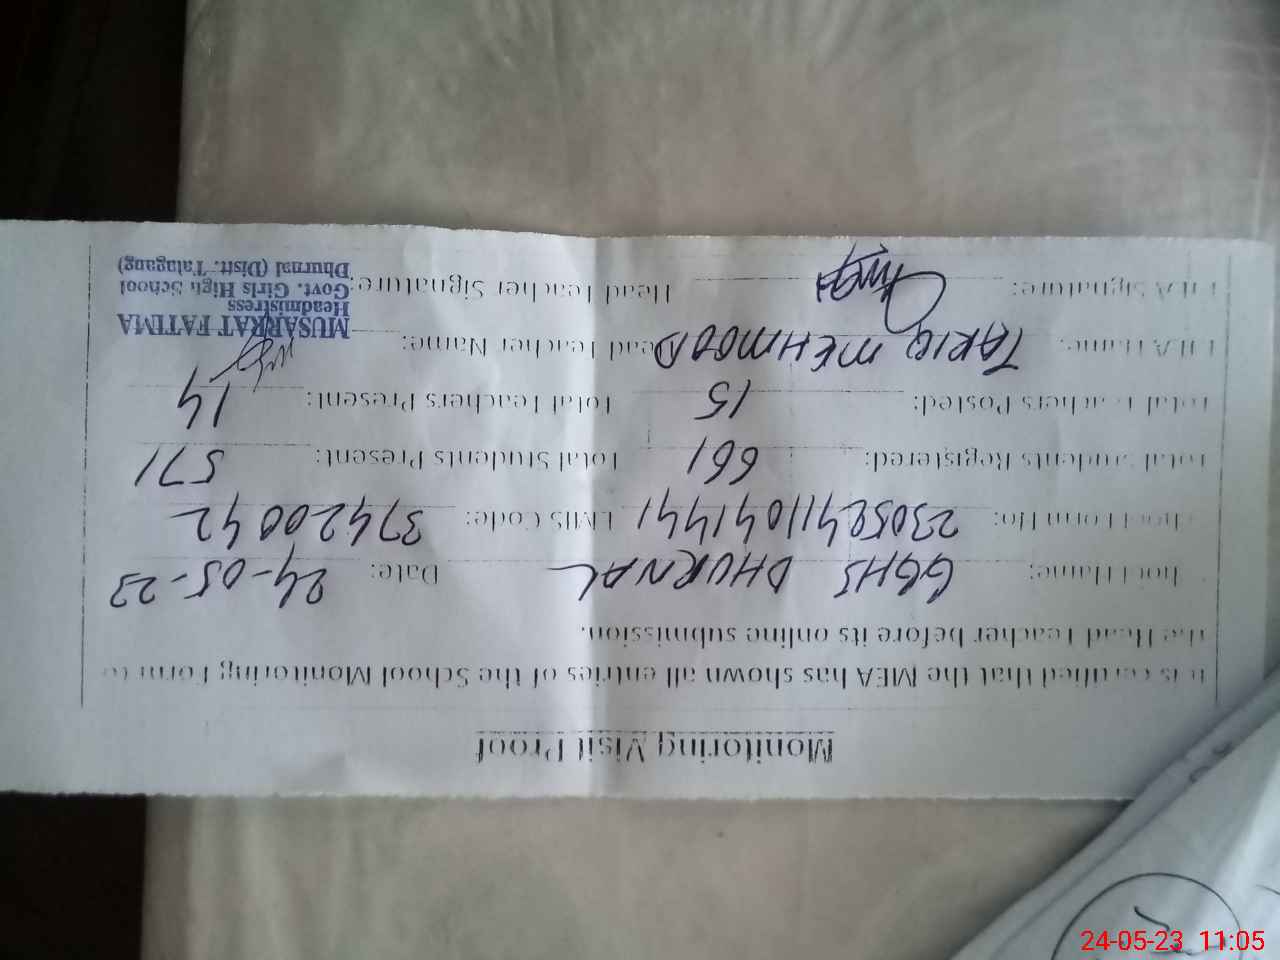 Monitoring Visit Proof
It is certified that the MEA has shown all entries of the School Monitoring Form to
the Head Teacher before its online submission.
School Name: GGHS DHURNAL Date: 24-05-23
School Form No: EMIS Code: 37420042
Total Students Registered: 661 Total Students Present: 571
Total Teachers Posted: 15 Total Teachers Present: 14
MEA Name: TARIQ MEHMOOD Head Teacher Name:
MUSARRAT FATIMA
Headmistress
Govt. Girls High School
Dhurnal (Distt. Talagang)
MEA Signature: Head Teacher Signature:
24-05-23 11:05